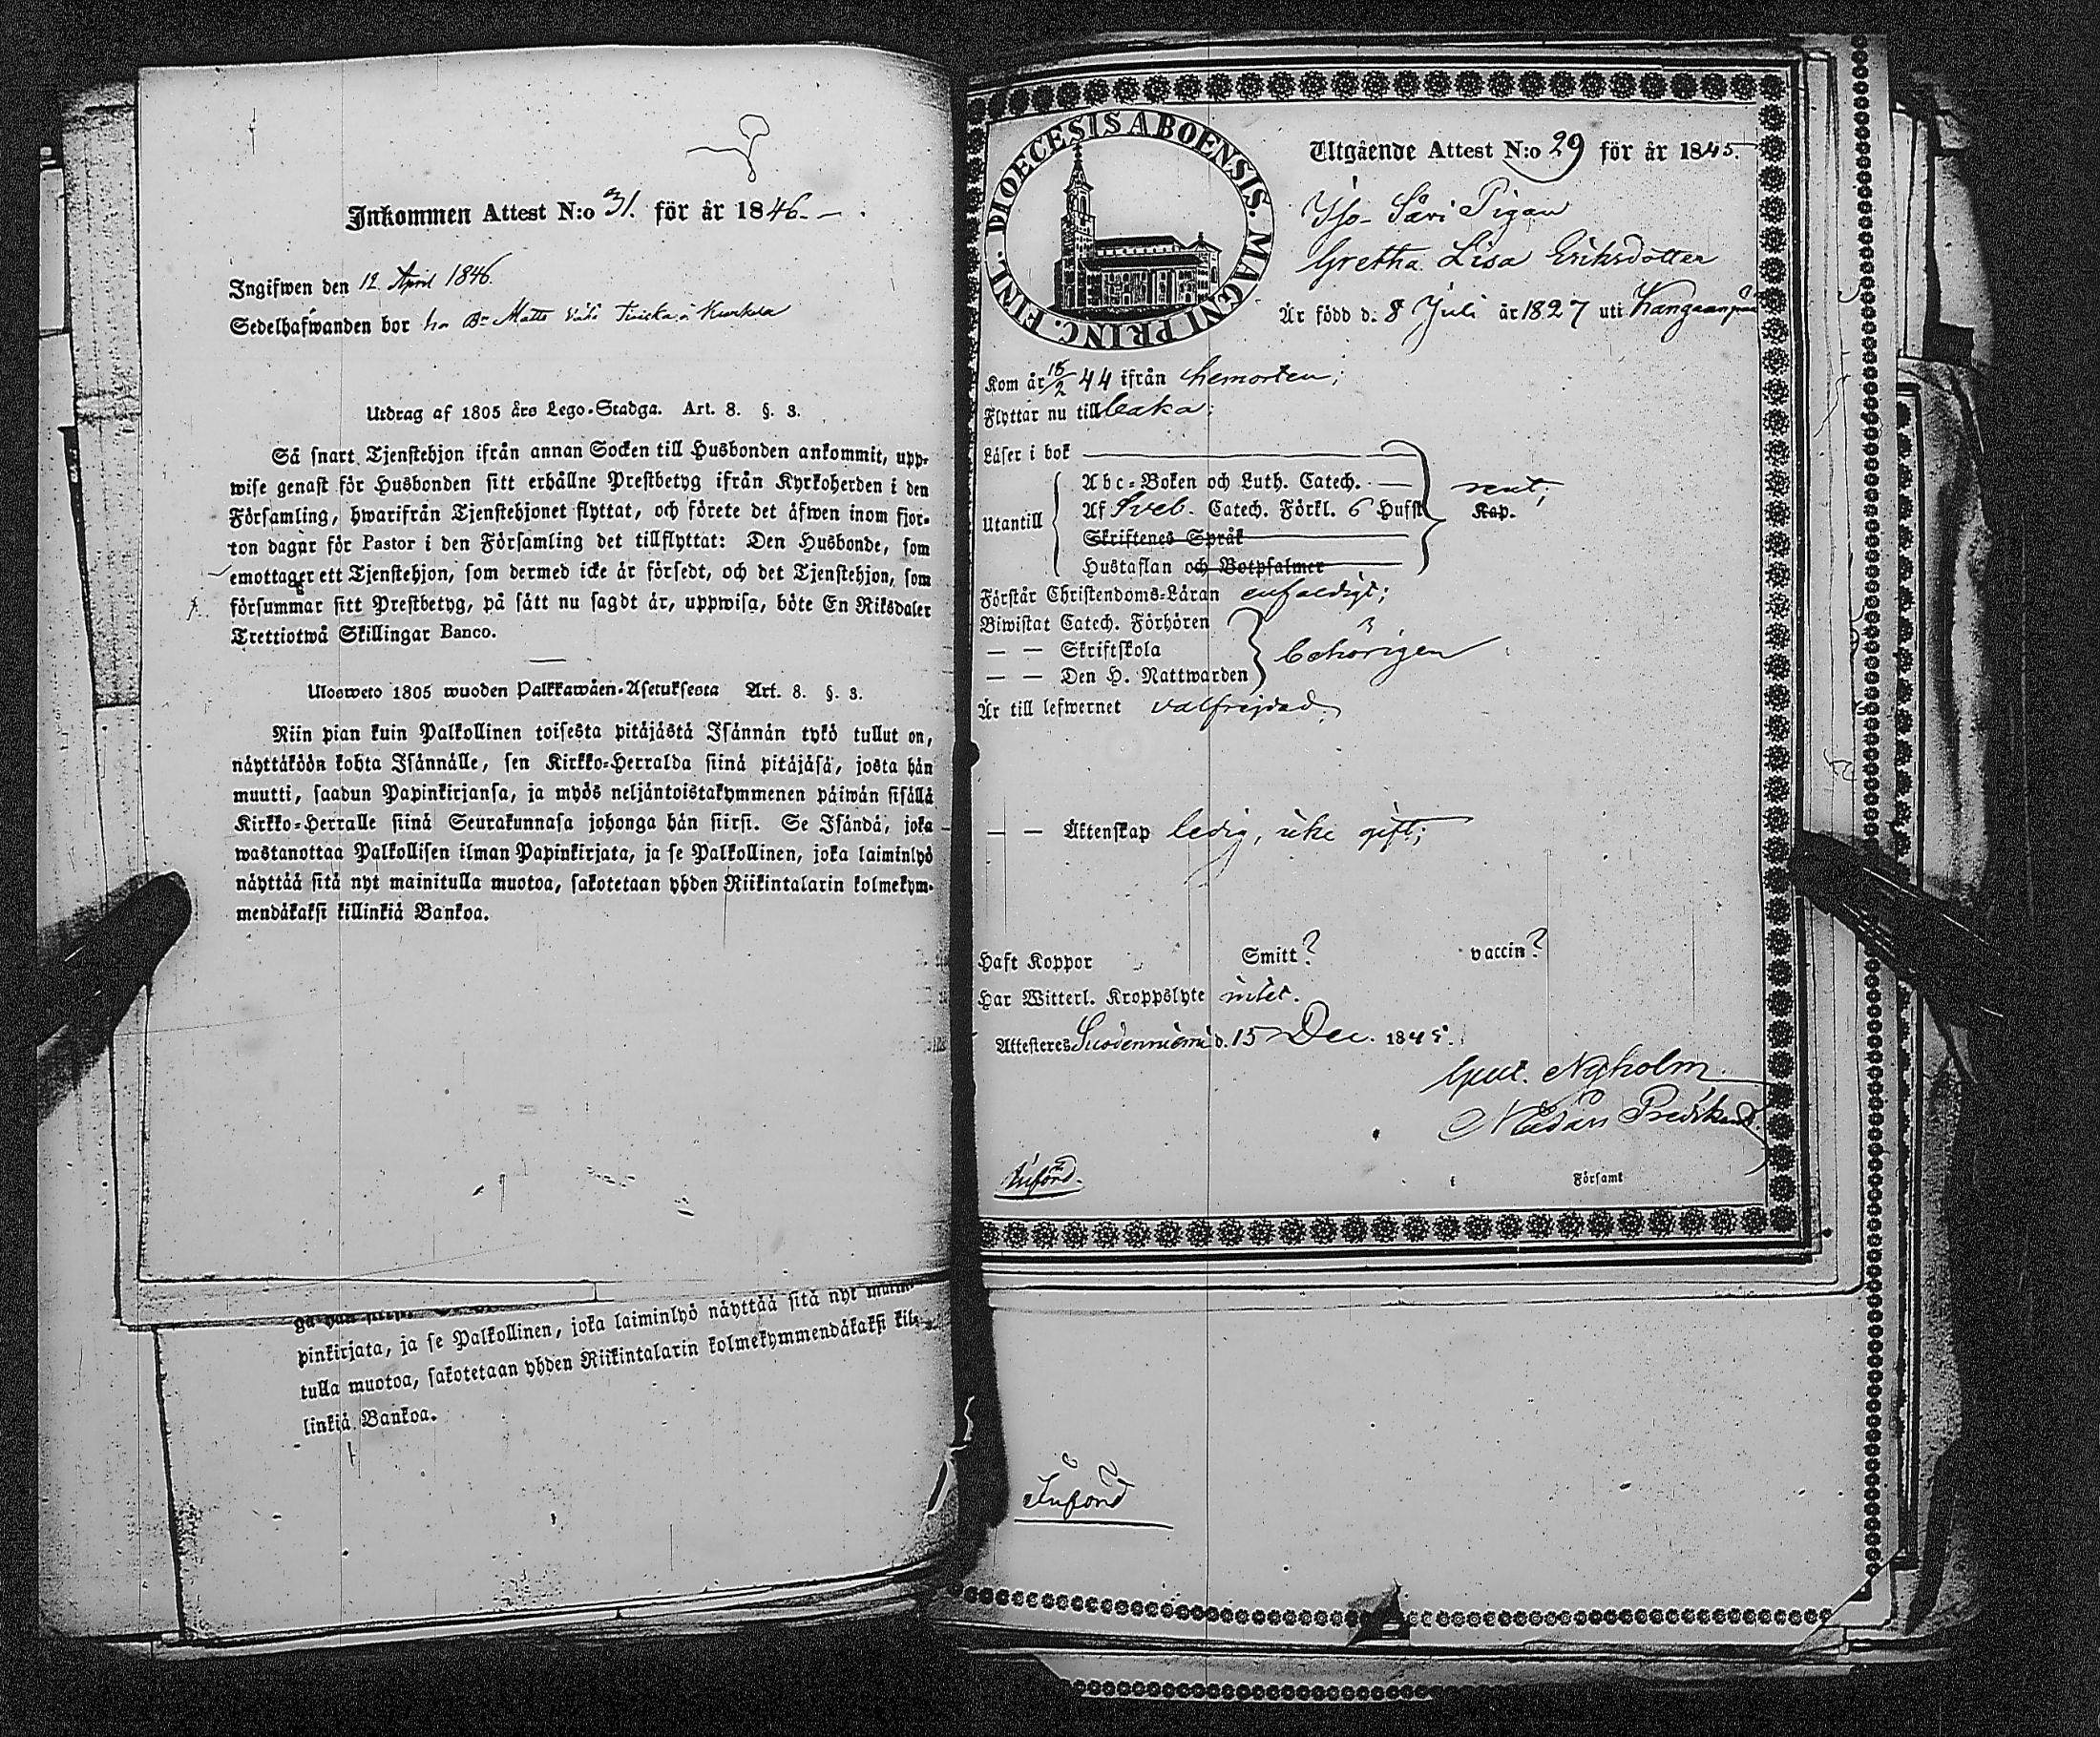 Inkommen Attest N:o 31. för år 1846.
Ingifwen den 12 April 1846.
Sedelhafwanden bor hos Matts Kurkela
Utdrag af 1805 års Lego-Stadga. Art. 8. §. 3.
Så snart Tjenstehjon ifrån annan Socken till Husbonden ankommit, upp-
wise genast för Husbonden sitt erhållne Prestbetyg ifrån Kyrkoherden i den
Församling, hwarifrån Tjenstehjonet flyttat, och förete det äfwen inom fjor-
ton dagar för Pastor i den Församling det tillflyttat: Den Husbonde, som
emottager ett Tjenstehjon, som dermed icke är försedt, och det Tjenstehjon, som
försummar sitt Prestbetyg, på sätt nu sagdt är, uppwisa, böte En Riksdaler
Trettiotwå Skillingar Banco.
Ulosweto 1805 wuoden Palkkawäen-Asetuksesta Art. 8. §. 3.
Niin pian kuin Palkollinen toisesta pitäjästä Isännän tykö tullut on,
näyttäköön kohta Isännälle, sen Kirkko-Herralda siinä pitäjäsä, josta hän
muutti, saadun Papinkirjansa, ja myös neljäntoistakymmenen päiwän sisällä
Kirkko-Herralle siinä Seurakunnasa johonga hän siirsi. Se Isändä, joka
wastanottaa Palkollisen ilman Papinkirjata, ja se Palkollinen, joka laiminlyö
näyttää sitä nyt mainitulla muotoa, sakotetaan yhden Riikintalarin kolmekym-
mendäkaksi killinkiä Bankoa.
pinkirjata, ja se Palkollinen, joka laiminlyö näyttää sitä nyt maini-
tulla muotoa, sakotetaan yhden Riikintalarin kolmekymmendäkaksi kil-
linkiä Bankoa.
DIOECESIS ABOENSIS. MAGNI PRINC. FINL.
Utgående Attest N:o 29 för år 1845.
Iso-Säri Pigan
Gretha Lisa Eriksdotter
Är född d. 8 Juli år 1827 uti Kangaanpää
Kom år 15/2 44 ifrån hemorten;
Flyttar nu till
Läser i bok
Utantill
Abc-Boken och Luth. Catech.
Af Sveb. Catech. Förkl. 6 Hufst
Skriftenes Språk
Hustaflan och Botpsalmer
rent;
Kap.
Förstår Christendoms-Läran enfaldigt;
Biwistat Catech. Förhören
— — Skriftskola
— — Den H. Nattwarden
behörigen
Är till lefwernet välfrejdad,
— — Äktenskap ledig, icke gift;
Haft Koppor Smitt? vaccin?
Har Witterl. Kroppslyte intet.
Attesteres Suodenniemi d. 15 Dec. 1845.
Gust. Nyholm
Predikant
Införd.
i Församl
Införd